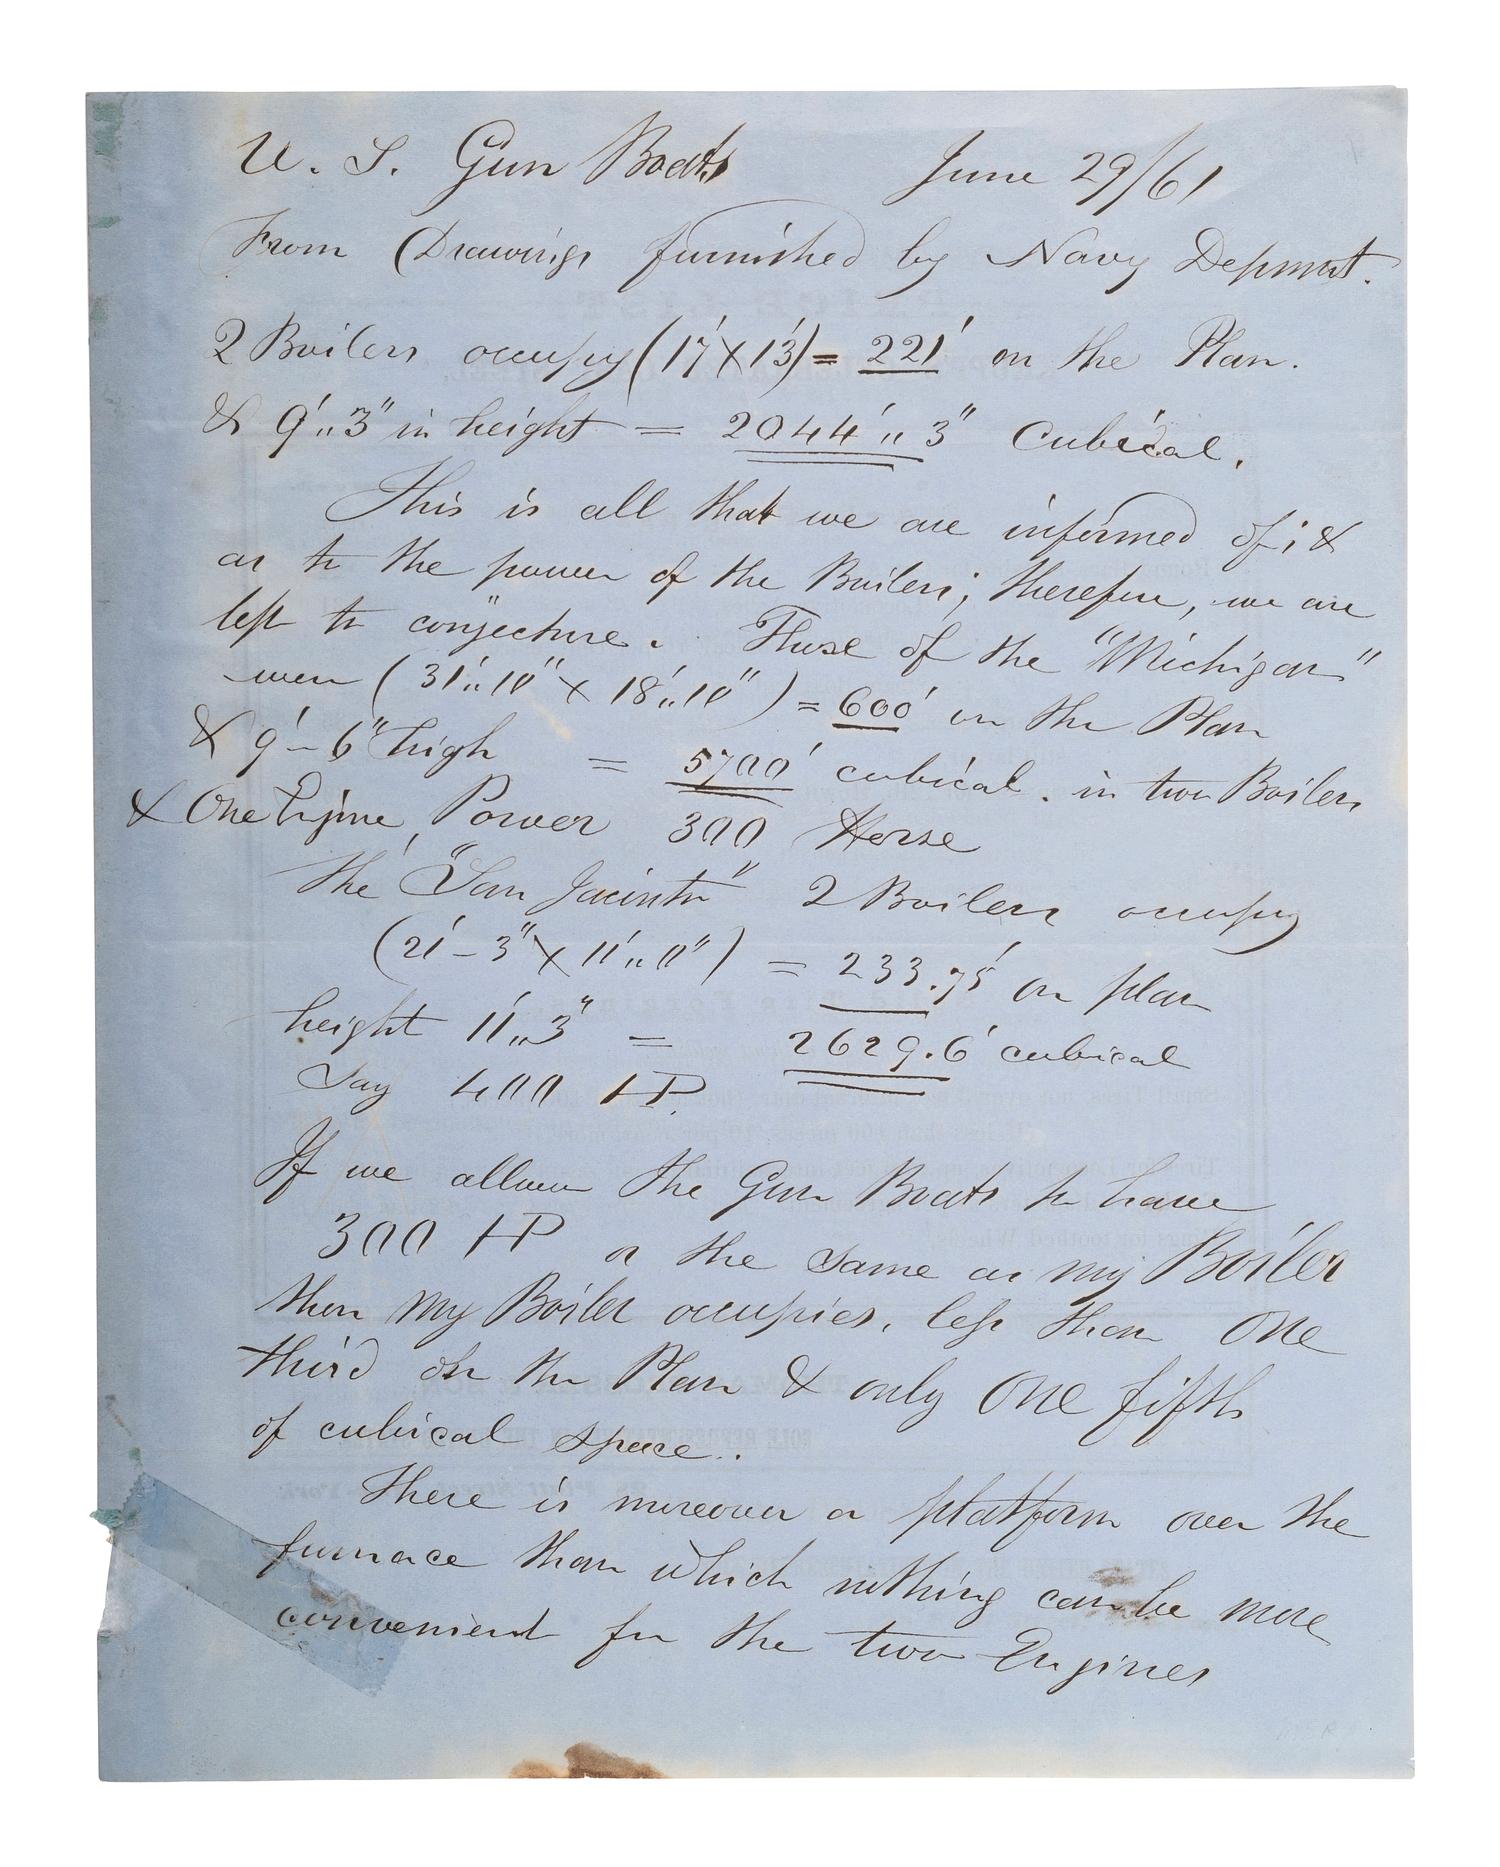 U. S. Gun Boats June 29/61
From Drawings furnished by Navy Depmnt.
2 Boilers occupy (17' X 13') = 221' on the Plan.
& 9'„3" in height = 2044'„3" Cubical.
This is all that we are informed of; &
as to the power of the Boilers; therefore, we are
left to conjecture. Those of the "Michigan"
were (31'„10" X 18'„10") = 600' on the Plan
& 9'–6" high = 5700' cubical. in two Boilers
& One Engine, Power 300 Horse
The "San Jacinto" 2 Boilers occupy
(21'–3" X 11'„0") = 233.75' on plan
height 11'„3" = 2629.6' cubical
Say 400 HP.
If we allow the Gun Boats to have
300 HP or the same as my Boiler
then my Boiler occupies, less than One
third on the Plan & only One fifth
of cubical space..
There is moreover a platform over the
furnace than which nothing can be more
convenient for the two Engines